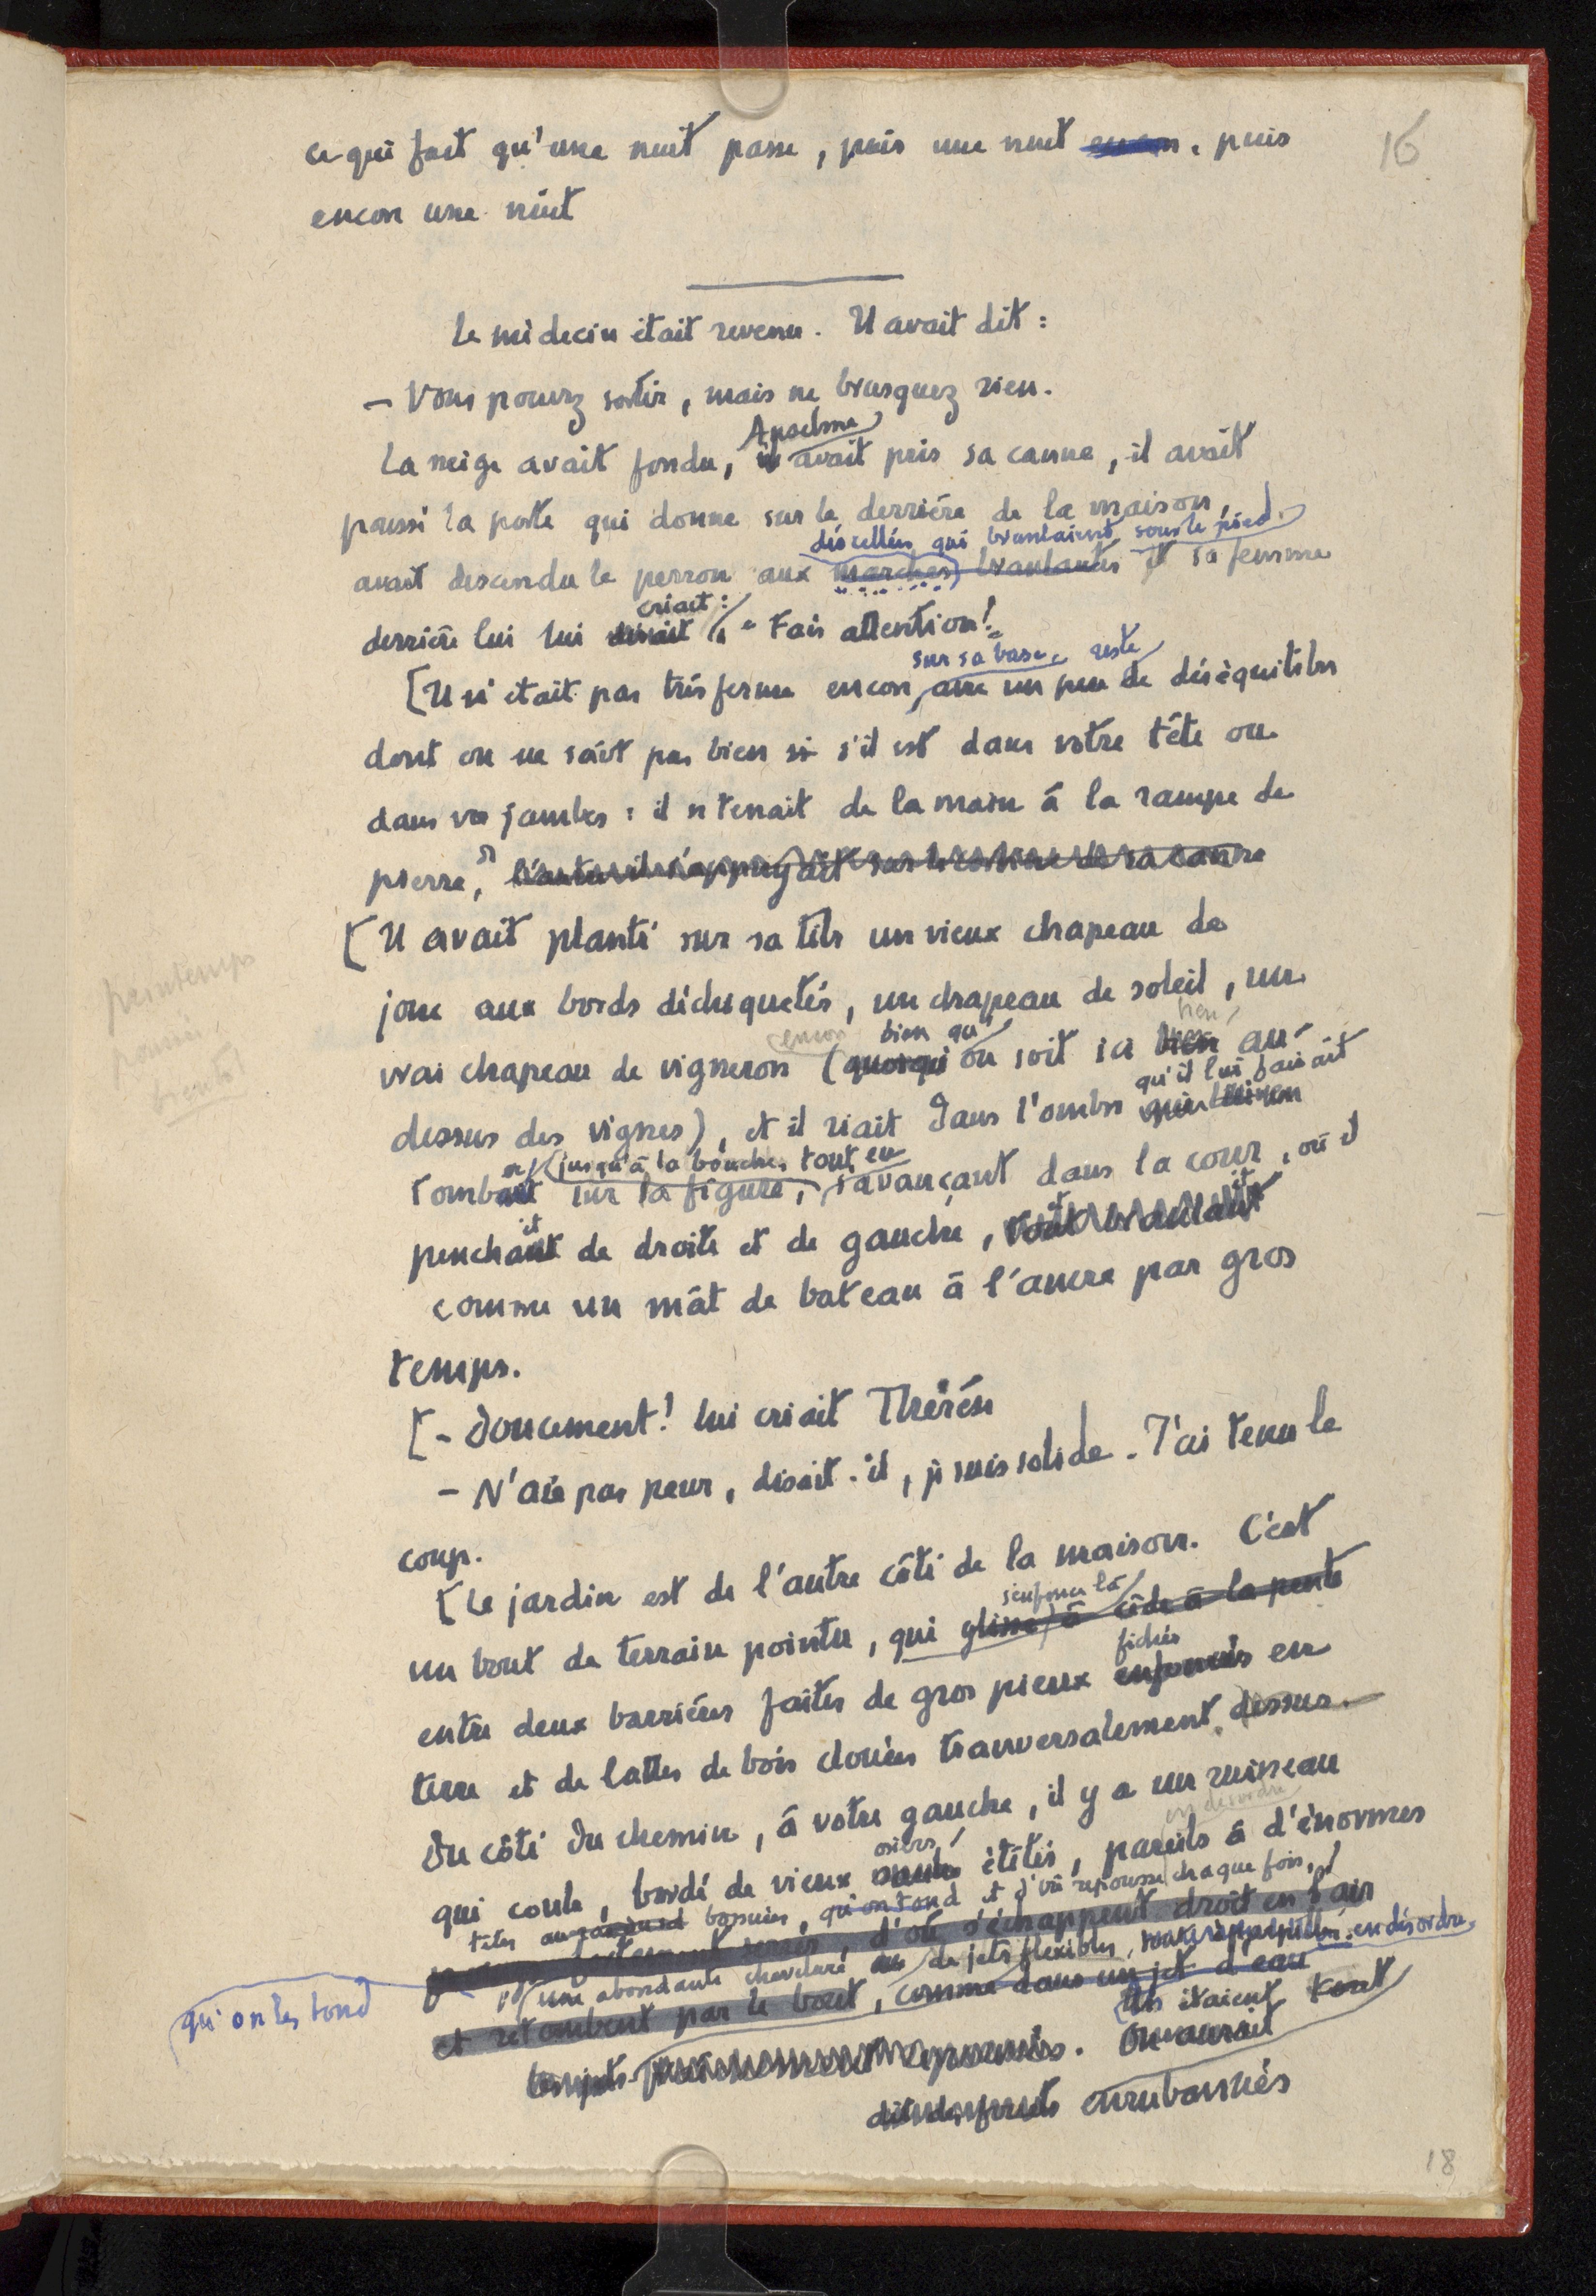 16
ce qui fait qu'une nuit passe, puis une nuit encore, puis
encore une nuit
Le médecin était revenu. Il avait dit :
— Vous pouvez sortir, mais ne brusquez rien.
Anselme
La neige avait fondu, il avait pris sa canne, il avait
poussé la porte qui donne sur le derrière de la maison,
déscellées qui branlaient sous le pied.
avait descendu le perron aux marches branlantes et sa femme
criait :
derrière lui lui disait : " Fais attention! "
sur sa base, reste
[Il n'était pas très ferme encore, avec un peu de déséquilibre
dont on ne sait pas bien si s'il est dans votre tête ou
dans vos jambes : il se tenait de la main à la rampe de
pierre, de l'autre il s'appuyait sur la corbine de sa canne
[Il avait planté sur sa tête un vieux chapeau de
printemps
jonc aux bords déchiquetés, un chapeau de soleil, un
encore bien qu' bien
vrai chapeau de vigneron (quoiqu'on soit ici bien au-
bientôt
qu'il lui faisait
dessus des vignes), et il riait dans l'ombre qui lui en
jusqu'à la bouche, tout en
tombait sur la figure, s'avançant dans la cour, où il
it
penchant de droite et de gauche, tout branlant
comme un mât de bateau à l'ancre par gros
temps.
[— Doucement! lui criait Thérèse
— N'aie pas peur, disait-il, je suis solide. J'ai tenu le
coup.
[Le jardin est de l'autre côté de la maison. C'est
s'enfonce là
un bout de terrain pointu, qui glisse à côté à la pente
fichés
entre deux barrières faites de gros pieux enfoncés en
terre et de lattes de bois clouées tranversalement dessus.
Du côté du chemin, à votre gauche, il y a un ruisseau
en désordre
osiers
qui coule, bordé de vieux saules étêtés, pareils à d'énormes
têtes bossuées, qu'on tond et d'où repousse chaque fois,
d'où s'échappent droit en l'air
qu'on les tond
une abondante chevelure de jets flexibles, en désordre,
et retombent par le bout, comme dans un jet d'eau
Ils étaient tout
On aurait
dit des fruits enrubannés
18